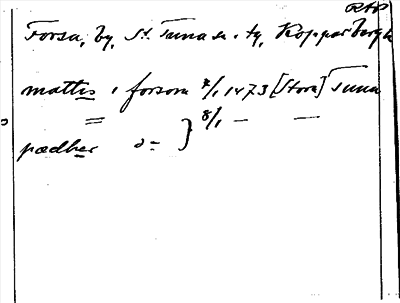 RAP
Forsa, by, St. Tuna sn. ty, Kopparbergs
mattis i forsom 7/1 1473 [Stora] Tuna
= } 8/1 — —
pædher